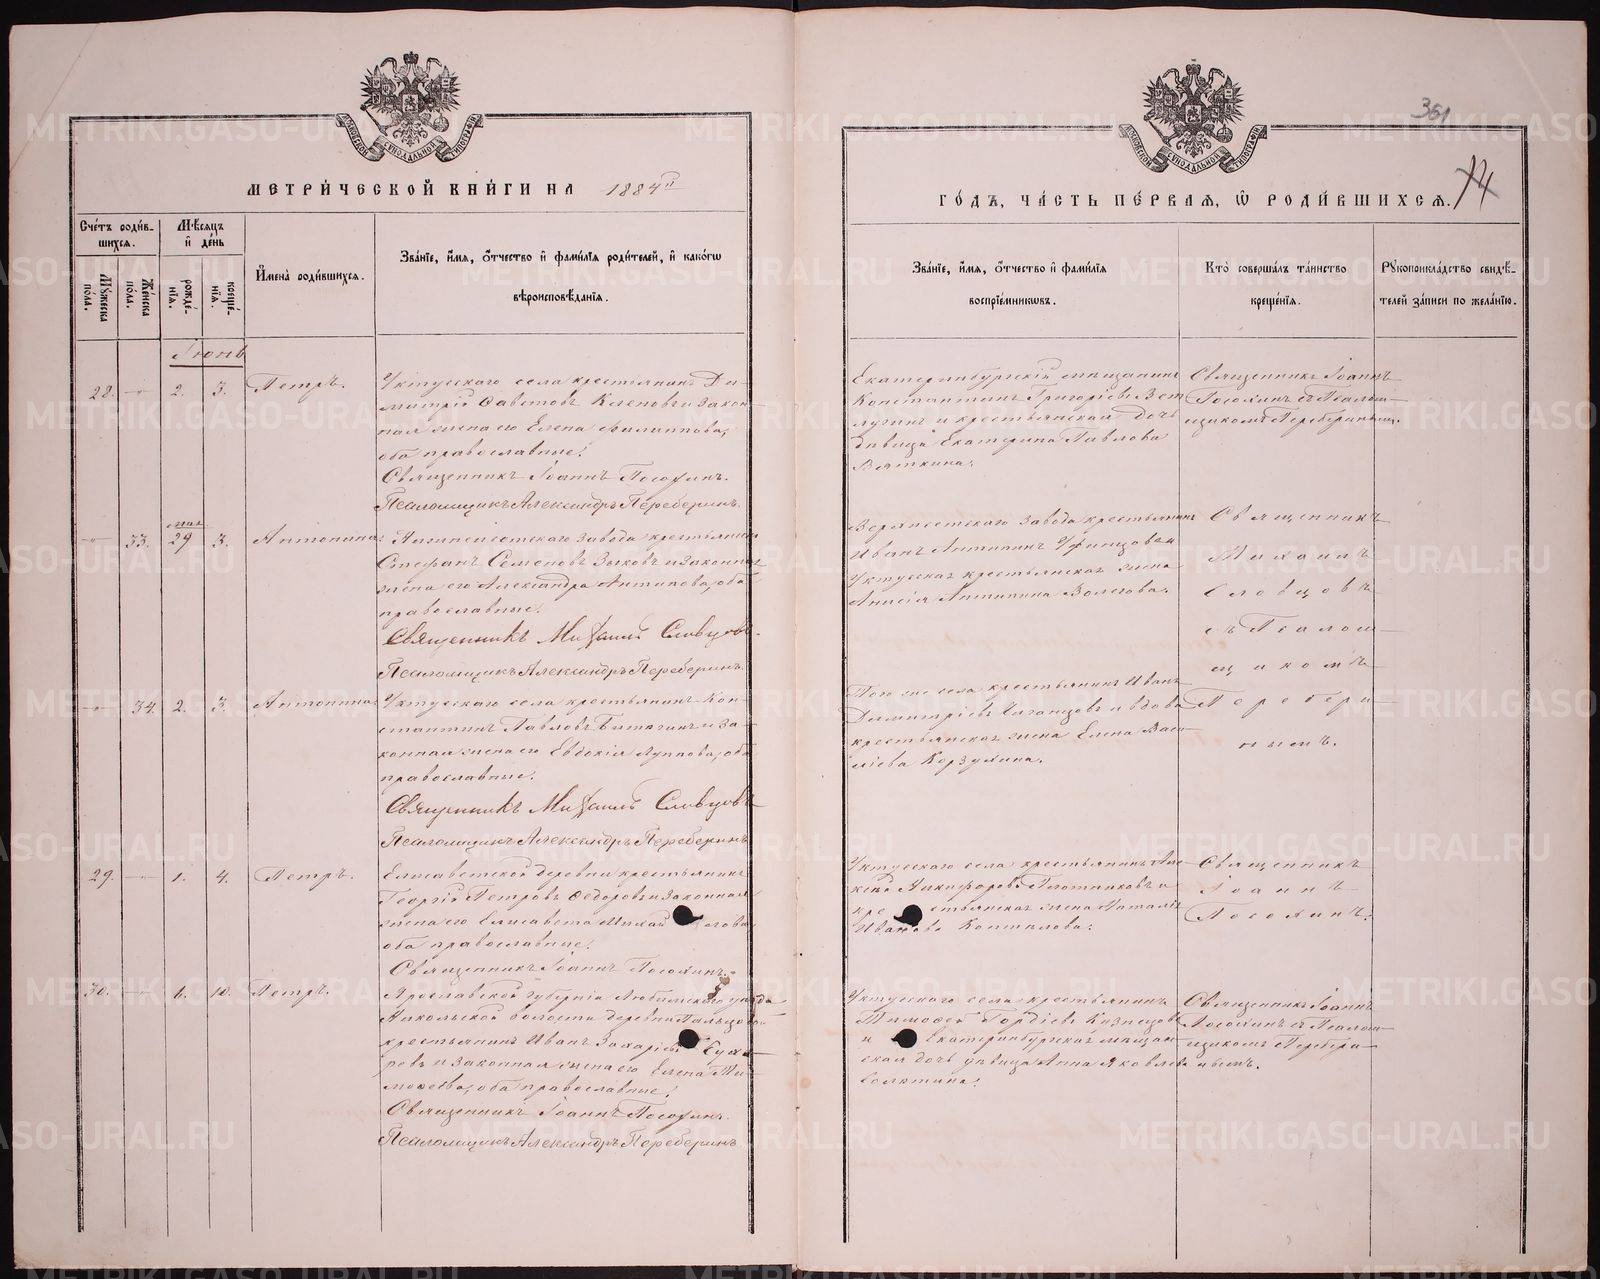 351
14
МЕТРИ́ЧЕСКОЙ КНИ́ГИ НА 1884й
ГО́ДЪ, ЧА́СТЬ ПЕ́РВАЯ, Ѡ҆ РОДИ́ВШИХСЯ.
Сче́тъ роди́в-
шихся.
Мѣ́сяцъ
и҆ де́нь
И҆мена̀ роди́вшихся.
Зва́нїе, и҆́мя, ѻ҆́тчество и҆ фами́лїя роди́телей, и҆ како́гѡ
вѣроисповѣ́данїя.
Му́жеска
по́ла.
Же́нска
по́ла.
рожде́-
нїя.
креще́-
нїя.
Зва́нїе, и҆́мя, ѻ҆́тчество и҆ фами́лїя
воспрїе́мниковъ.
Кто̀ соверша́лъ та́инство
креще́нїя.
Рꙋкоприкла́дство свидѣ́-
телей за́писи по жела́нїю.
Іюнь
28. 2. 3. Петръ.
Уктусскаго села крестьянинъ Ди-
митрій Саветовъ Клеповъ и закон-
ная жена его Елена Филиппова,
оба православные.
Священникъ Іоаннъ Посохинъ.
Псаломщикъ Александръ Переберинъ.
Екатеринбургскій мѣщанинъ
Константинъ Григоріевъ Вет
лугинъ и крестьянская дочь
дѣвица Екатерина Павлова
Вяткина.
Священникъ Іоаннъ
Посохинъ съ Псалом-
щикомъ Переберинымъ.
мая
33. 29 3. Антонина.
Нижнеисетскаго завода крестьянинъ
Стефанъ Семеновъ Зыковъ и законная
жена его Александра Антипова, оба
православные.
Священникъ Михаилъ Словцовъ.
Псаломщикъ Александръ Переберинъ.
Верхисетскаго завода крестьянинъ
Иванъ Антипинъ Уфинцовъ и
Уктусская крестьянская жена
Анисія Антипина Волегова.
Священникъ
Михаилъ
Словцовъ
съ Псалом-
щикомъ
Перебери-
нымъ.
34. 2. 3. Антонина.
Уктусскаго села крестьянинъ Кон-
стантинъ Павловъ Битюгинъ и за-
конная жена его Евдокія Луппова, оба
православные.
Священникъ Михаилъ Словцовъ
Псаломщикъ Александръ Переберинъ
Того же села крестьянинъ Иванъ
Димитріевъ Чиганцовъ и вдова
крестьянская жена Елена Васи-
ліева Корзухина.
29. 1. 4. Петръ.
Елисаветской деревни крестьянинъ
Георгій Петровъ Ѳедоровъ и законная
жена его Елисавета
оба православные.
Священникъ Іоаннъ Посохинъ.
Уктусскаго села крестьянинъ Але-
ксѣй Никифоровъ Плотниковъ и
крестьянская жена Наталія
Иванова Коптѣлова.
Священникъ
Іоаннъ
Посохинъ.
30. 6. 10. Петръ.
Ярославской губерніи Любимскаго уѣзда
Никольской волости деревни Пальцово
крестьянинъ Иванъ Захаріевъ Суха-
ревъ и законная жена его Елена Ти-
моѳеева, оба православные.
Священникъ Іоаннъ Посохинъ.
Псаломщикъ Александръ Переберинъ
Уктусскаго села крестьянинъ
Тимоѳей Гордіевъ Кузнецовъ
и Екатеринбургская мѣщан-
ская дочь дѣвица Анна Яковлева
Болотина.
Священникъ Іоаннъ
Посохинъ съ Псалом-
щикомъ Перебери-
нымъ.